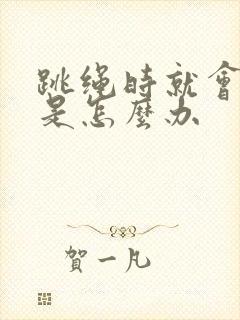 跳绳時就會
是怎麼办
賀一凡